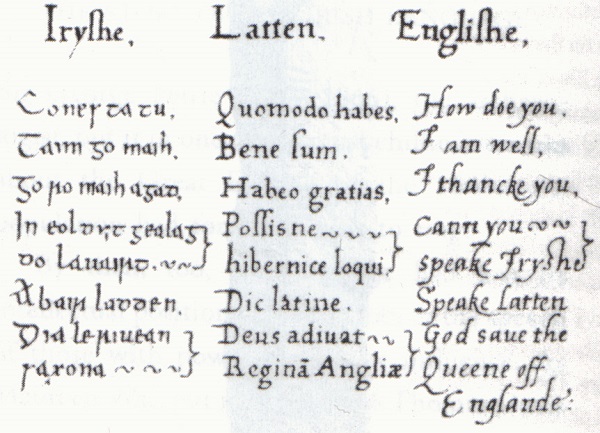 Iryshe, Latten. Englishe,
Cones ta tu, Quomodo habes, How doe you
Taim go maih, Bene sum. I am well,
Go ro maih agad, Habeo gratias, I thancke you,
In eol dyt gealag Possis ne Cann you
do Lauairt. hibernice loqui, speake Iryshe
Abair ladden, Dic latine. Speake Latten
Dia le riuean Deus adiuat God saue the
saxona Reginā Angliæ Queene off
Englande: